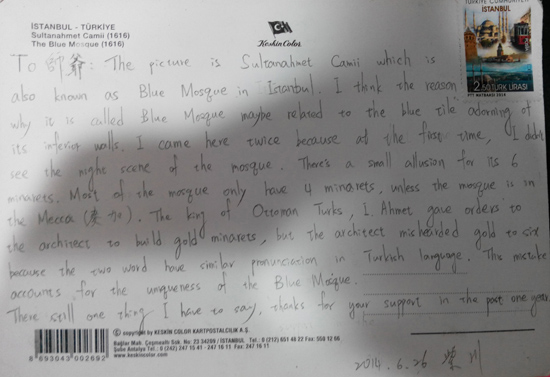 İSTANBUL - TÜRKİYE
Sultanahmet Camii (1616)
The Blue Mosque (1616)
Keskin Color
TÜRKİYE CUMHURİYETİ
İSTANBUL
2.50 TÜRK LİRASI
To 郭爺: The picture is Sultanahmet Camii which is
also known as Blue Mosque in Istanbul. I think the reason
why it is called Blue Mosque maybe related to the blue tile adorning of
its inferior walls. I came here twice because at the first time, I didn't
see the night scene of the mosque. There's a small allusion for its 6
minarets. Most of the mosque only have 4 minarets, unless the mosque is in
the Mecca (麥加). The king of Ottoman Turks, I. Ahmet gave orders to
the architect to build gold minarets, but the architect misheard gold to six
because the two word have similar pronunciation in Turkish language. This mistake
accounts for the uniqueness of the Blue Mosque.
There still one thing I have to say, thanks for your support in the past one year.
© copyright by KESKİN COLOR KARTPOSTALCILIK A.Ş.
www.keskincolor.com
8 693043 002692
2014.6.26